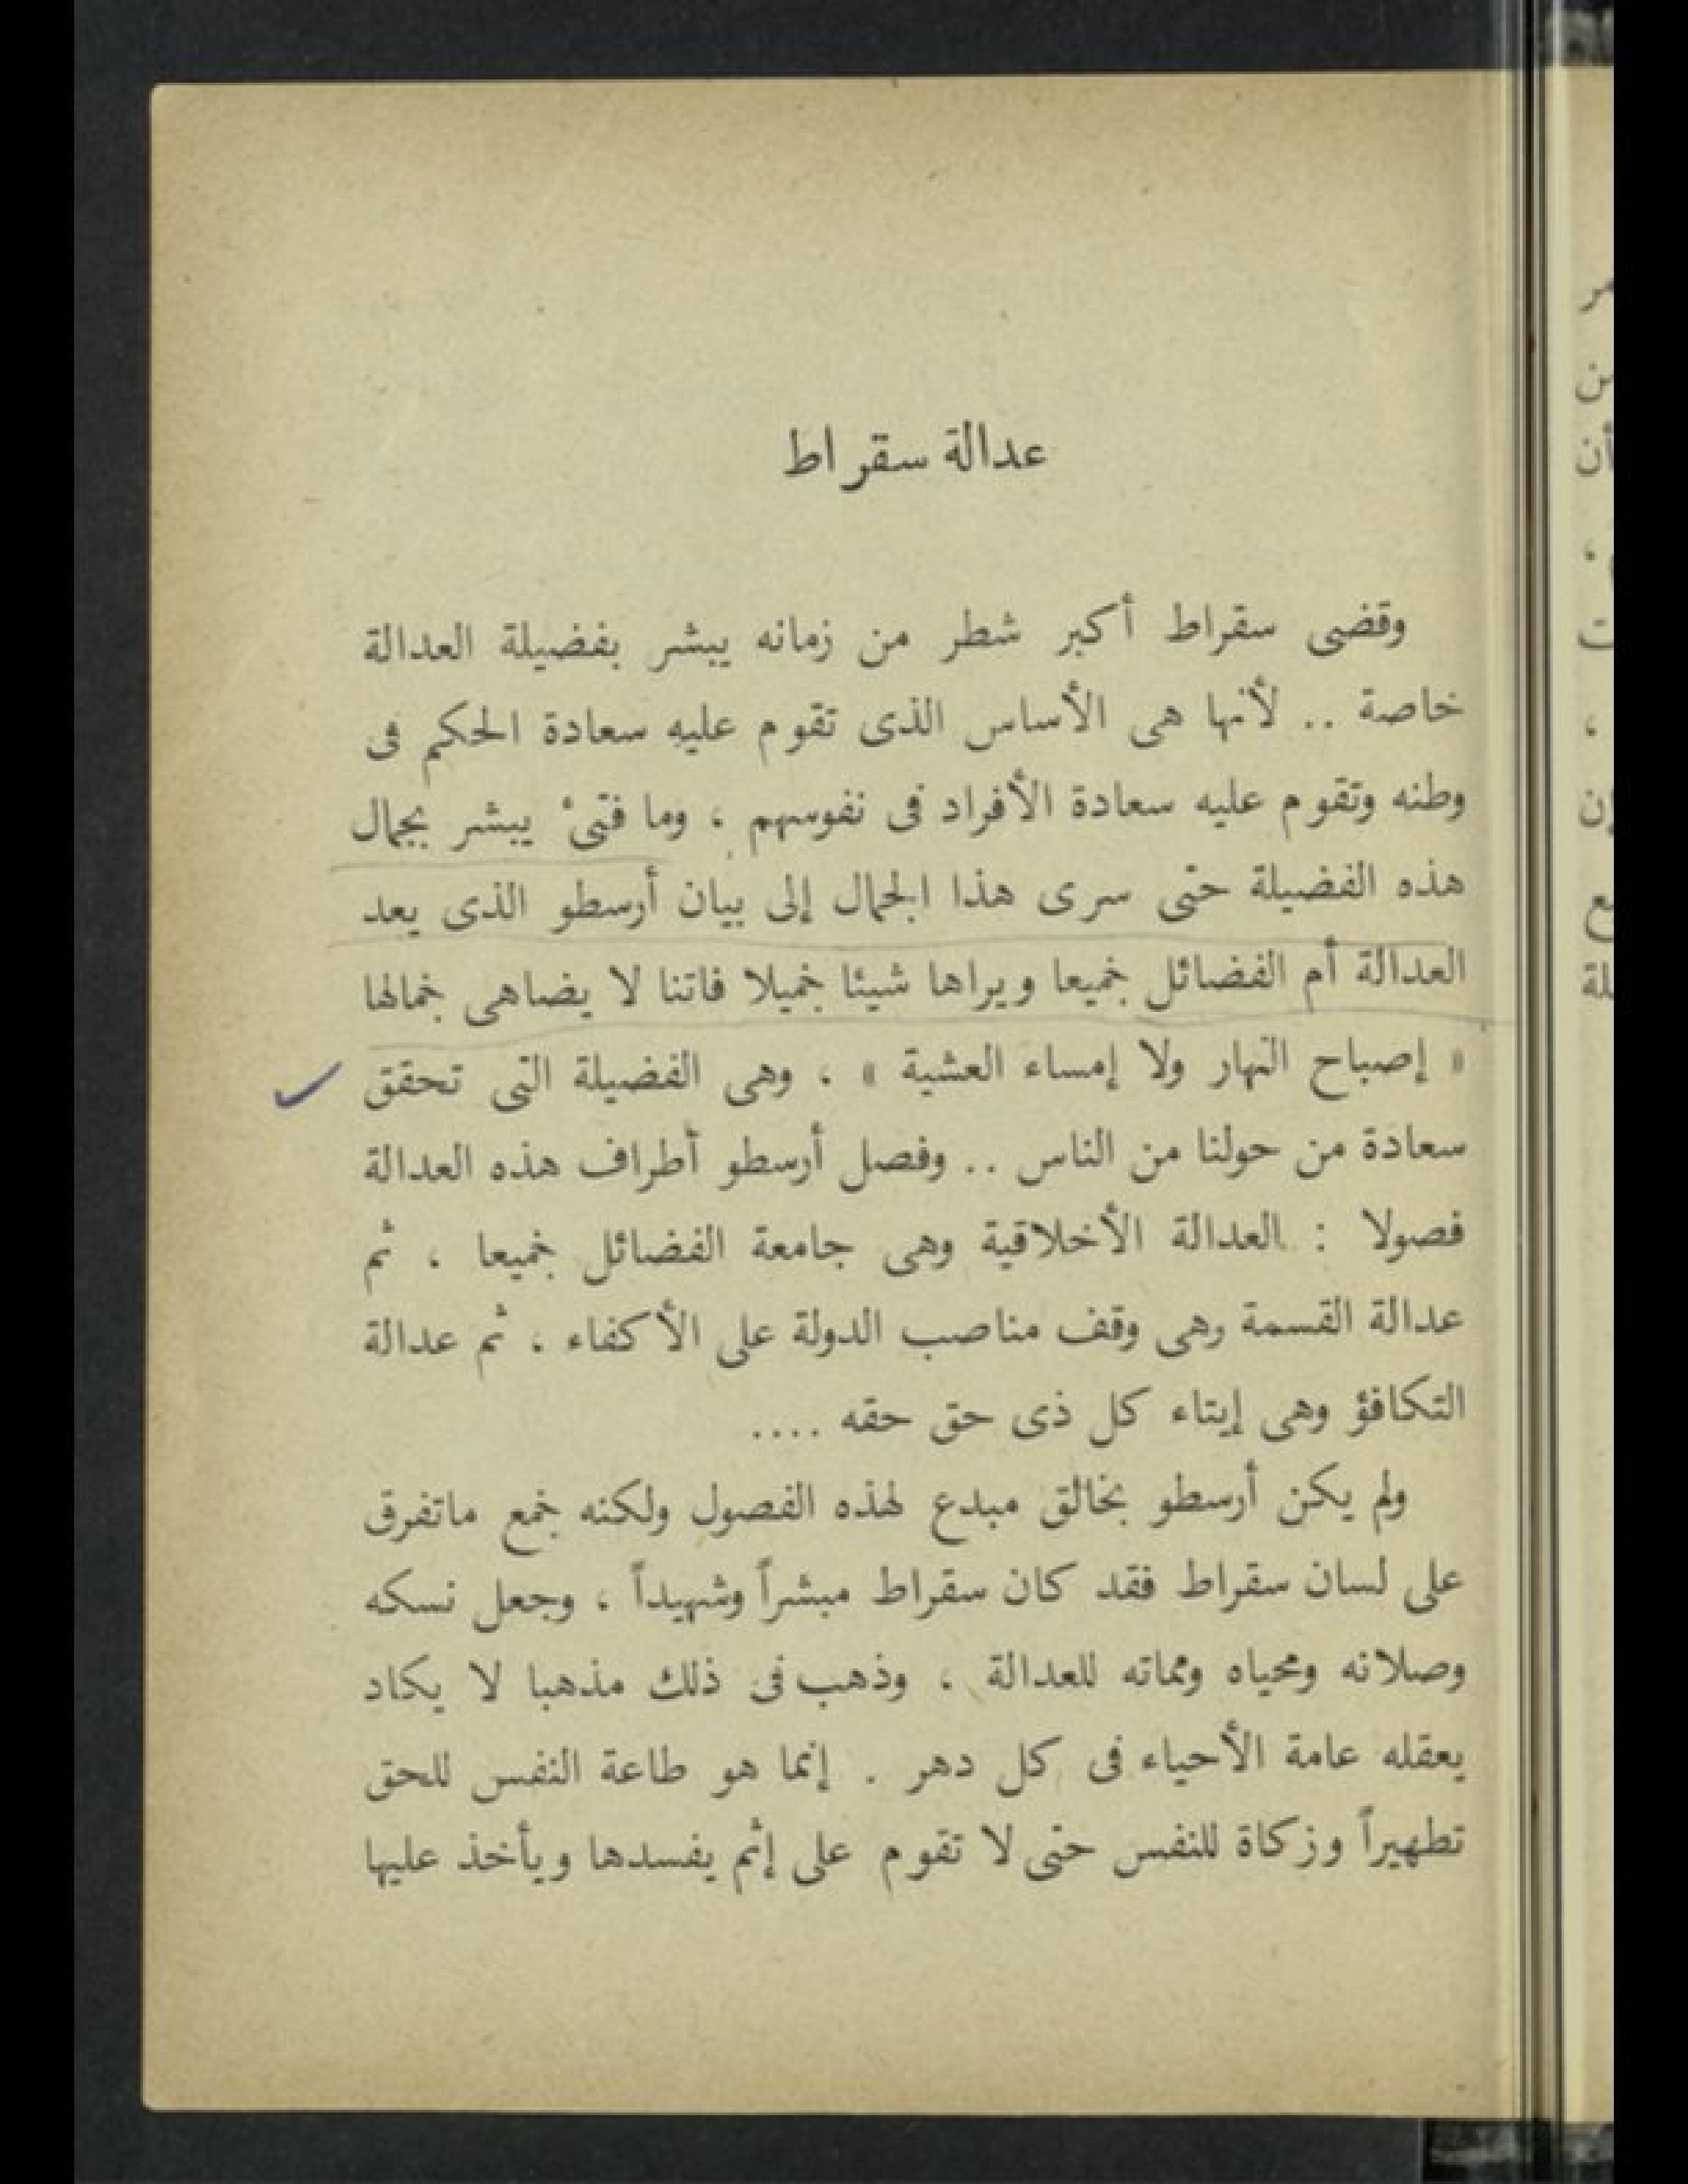 عدالة سقراط
وقضى سقراط أكبر شطر من زمانه يبشر بفضيلة العدالة
خاصة .. لأنها هى الأساس الذى تقوم عليه سعادة الحكم فى
وطنه وتقوم عليه سعادة الأفراد فى نفوسهم ، وما فتىء يبشر بجمال
هذه الفضيلة حتى سرى هذا الجمال إلى بيان أرسطو الذى يعد
العدالة أم الفضائل جميعا ويراها شيئا جميلا فاتنا لا يضاهى جمالها
« إصباح النهار ولا إمساء العشية » ، وهى الفضيلة التى تحقق
سعادة من حولنا من الناس .. وفصل أرسطو أطراف هذه العدالة
فصولا : العدالة الأخلاقية وهى جامعة الفضائل جميعا ، ثم
عدالة القسمة وهى وقف مناصب الدولة على الأكفاء ، ثم عدالة
التكافؤ وهى إيتاء كل ذى حق حقه ....
ولم يكن أرسطو بخالق مبدع لهذه الفصول ولكنه جمع ماتفرق
على لسان سقراط فقد كان سقراط مبشراً وشهيداً ، وجعل نسكه
وصلاته ومحياه ومماته للعدالة ، وذهب فى ذلك مذهبا لا يكاد
يعقله عامة الأحياء فى كل دهر . إنما هو طاعة النفس للحق
تطهيراً وزكاة للنفس حتى لا تقوم على إثم يفسدها ويأخذ عليها
مر
أن
إن